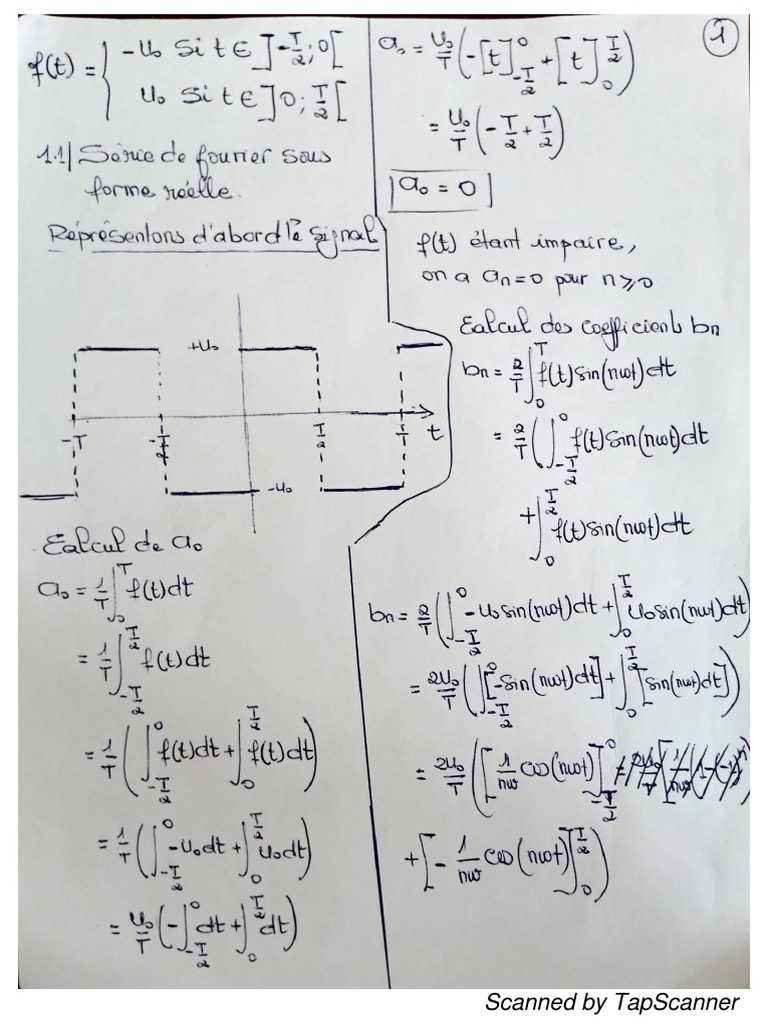 f(t) = { -U₀ Si t ∈ ]-T/2; 0[
U₀ Si t ∈ ]0; T/2[
1.1| Série de fourier sous
forme réelle.
Représentons d'abord le signal
+U₀
-T -T/2 T/2 T t
-U₀
Calcul de a₀
a₀ = 1/T ∫₀^T f(t)dt
= 1/T ∫_{-T/2}^{T/2} f(t)dt
= 1/T ( ∫_{-T/2}^0 f(t)dt + ∫_0^{T/2} f(t)dt )
= 1/T ( ∫_{-T/2}^0 -U₀dt + ∫_0^{T/2} U₀dt )
= U₀/T ( -∫_{-T/2}^0 dt + ∫_0^{T/2} dt )
1
a₀ = U₀/T ( -[t]_{-T/2}^0 + [t]_0^{T/2} )
= U₀/T ( -T/2 + T/2 )
a₀ = 0
f(t) étant impaire,
on a an = 0 pour n ⩾ 0
Calcul des coefficients bn
bn = 2/T ∫_0^T f(t)sin(nωt)dt
= 2/T ( ∫_{-T/2}^0 f(t)sin(nωt)dt
+ ∫_0^{T/2} f(t)sin(nωt)dt
bn = 2/T ( ∫_{-T/2}^0 -U₀sin(nωt)dt + ∫_0^{T/2} U₀sin(nωt)dt )
= 2U₀/T ( ∫_{-T/2}^0 [-sin(nωt)dt] + ∫_0^{T/2} [sin(nωt)dt] )
= 2U₀/T ( [1/nω cos(nωt)]_{-T/2}^0
+ [-1/nω cos(nωt)]_0^{T/2} )
Scanned by TapScanner